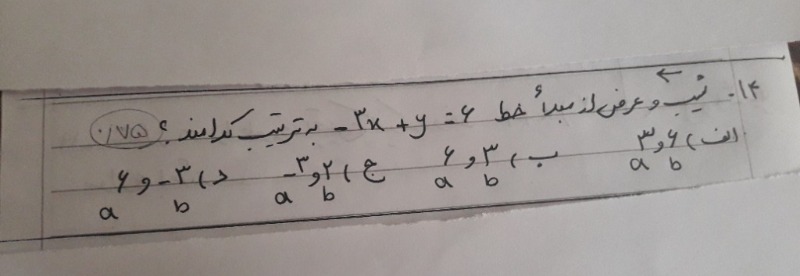 ۱۴- شیب و عرض از مبدأ خط -۳x + y = ۶ به ترتیب کدامند؟ ۰/۷۵
الف) ۶ و ۳ ب) ۳ و ۶ ج) ۲ و -۳ د) -۳ و ۶
a b a b a b a b